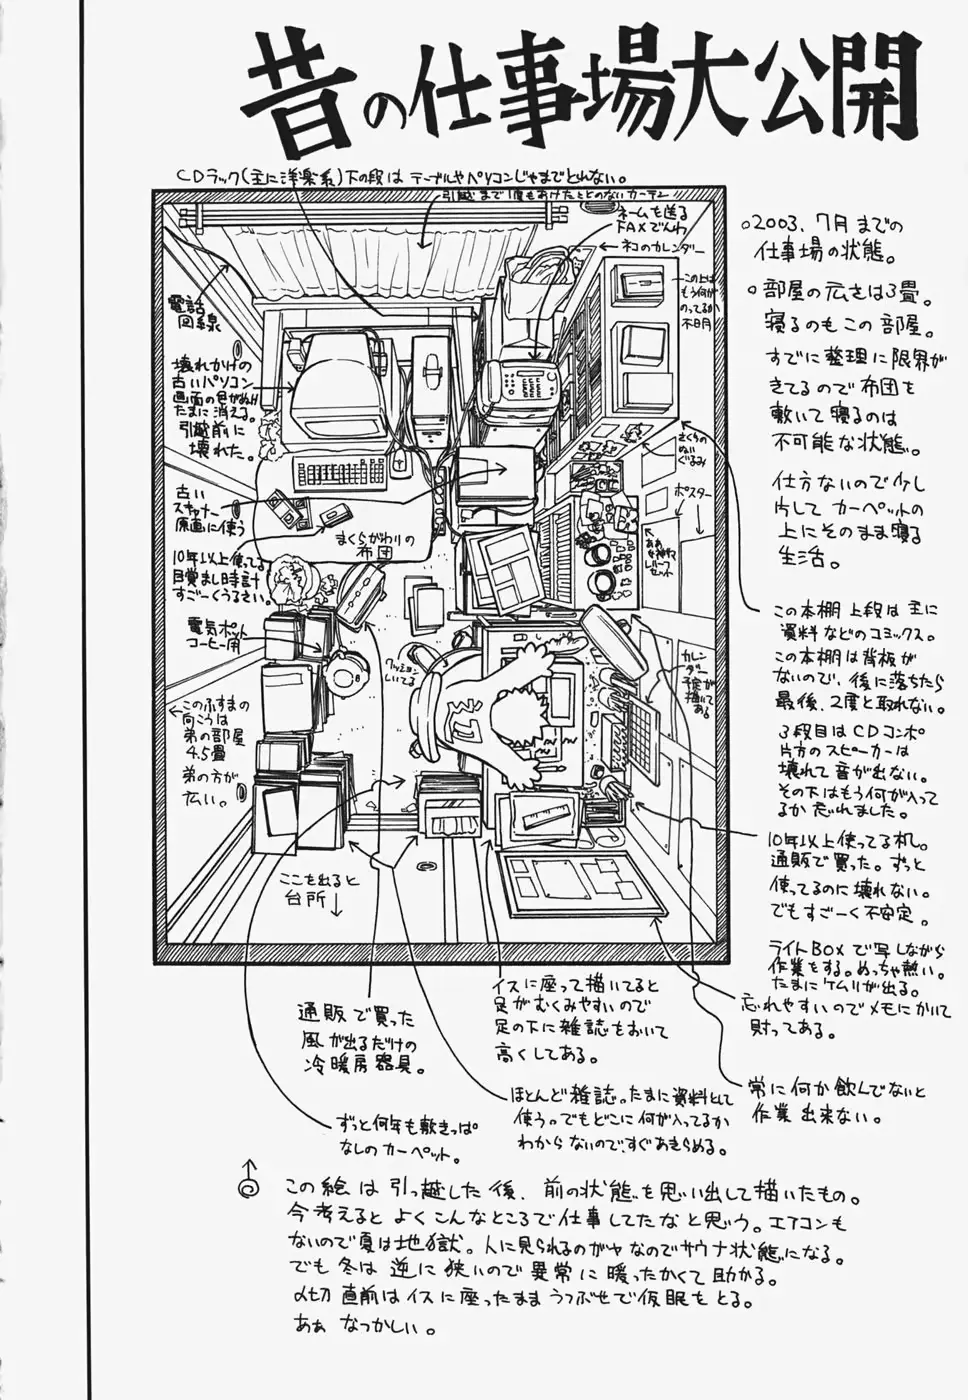 昔の仕事場大公開
CDラック(主に洋楽系)下の段は テーブルやパソコンじゃまでとれない。
引越まで1度もあけたことのないカーテン
ネームを送る
FAXでんわ
ネコのカレンダー
この上は
もう何が
のってるか
不明
電話
回線
壊れかけの
古いパソコン
画面の色がぬけ
たまに消える。
引越前に
壊れた。
古い
スキャナー
原画に使う
10年以上使ってる
目覚まし時計
すごーくうるさい。
電気ポット
コーヒー用
このふすまの
向こうは
弟の部屋
4.5畳
弟の方が
広い。
まくらがわりの
布団
クッション
しいてる
さくらの
ぬいぐるみ
ポスター
カレン
ダー
予定が
描いて
ある
〆切
ここを出ると
台所
○2003.7月までの
仕事場の状態。
○部屋の広さは3畳。
寝るのもこの部屋。
すでに整理に限界が
きてるので布団を
敷いて寝るのは
不可能な状態。
仕方ないので少し
片して カーペットの
上にそのまま寝る
生活。
この本棚上段は主に
資料などのコミックス。
この本棚は背板が
ないので、後に落ちたら
最後、2度と取れない。
3段目はCDコンポ
片方のスピーカーは
壊れて音が出ない。
その下はもう何が入って
るか忘れました。
10年以上使ってる机。
通販で買った。ずっと
使ってるのに壊れない。
でもすごーく不安定。
ライトBOXで写しながら
作業をする。めっちゃ熱い。
たまにケムリが出る。
忘れやすいのでメモにかいて
貼ってある。
常に何か飲んでないと
作業出来ない。
イスに座って描いてると
足がむくみやすいので
足の下に雑誌をおいて
高くしてある。
通販で買った
風が出るだけの
冷暖房器具。
ほとんど雑誌。たまに資料として
使う。でもどこに何が入ってるか
わからないので、すぐあきらめる。
ずっと何年も敷きっぱ
なしのカーペット。
この絵は引っ越した後、前の状態を思い出して描いたもの。
今考えるとよくこんなところで仕事してたなと思う。エアコンも
ないので夏は地獄。人に見られるのがヤなのでサウナ状態になる。
でも冬は逆に狭いので異常に暖ったかくて助かる。
〆切直前はイスに座ったままうつぶせで仮眠をとる。
あぁ なつかしい。